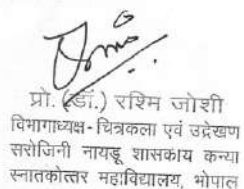 प्रो. (डॉ.) रश्मि जोशी
विभागाध्यक्ष-चित्रकला एवं उद्रेखण
सरोजिनी नायडू शासकीय कन्या
स्नातकोत्तर महाविद्यालय, भोपाल